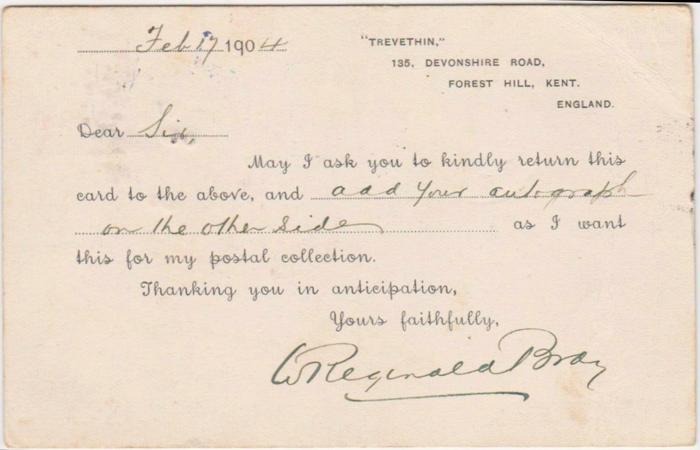 Feb 17 1904
"TREVETHIN,"
135, DEVONSHIRE ROAD,
FOREST HILL, KENT.
ENGLAND.
Dear Sir,
May I ask you to kindly return this
card to the above, and add your autograph
on the other side as I want
this for my postal collection.
Thanking you in anticipation,
Yours faithfully,
W Reginald Bray